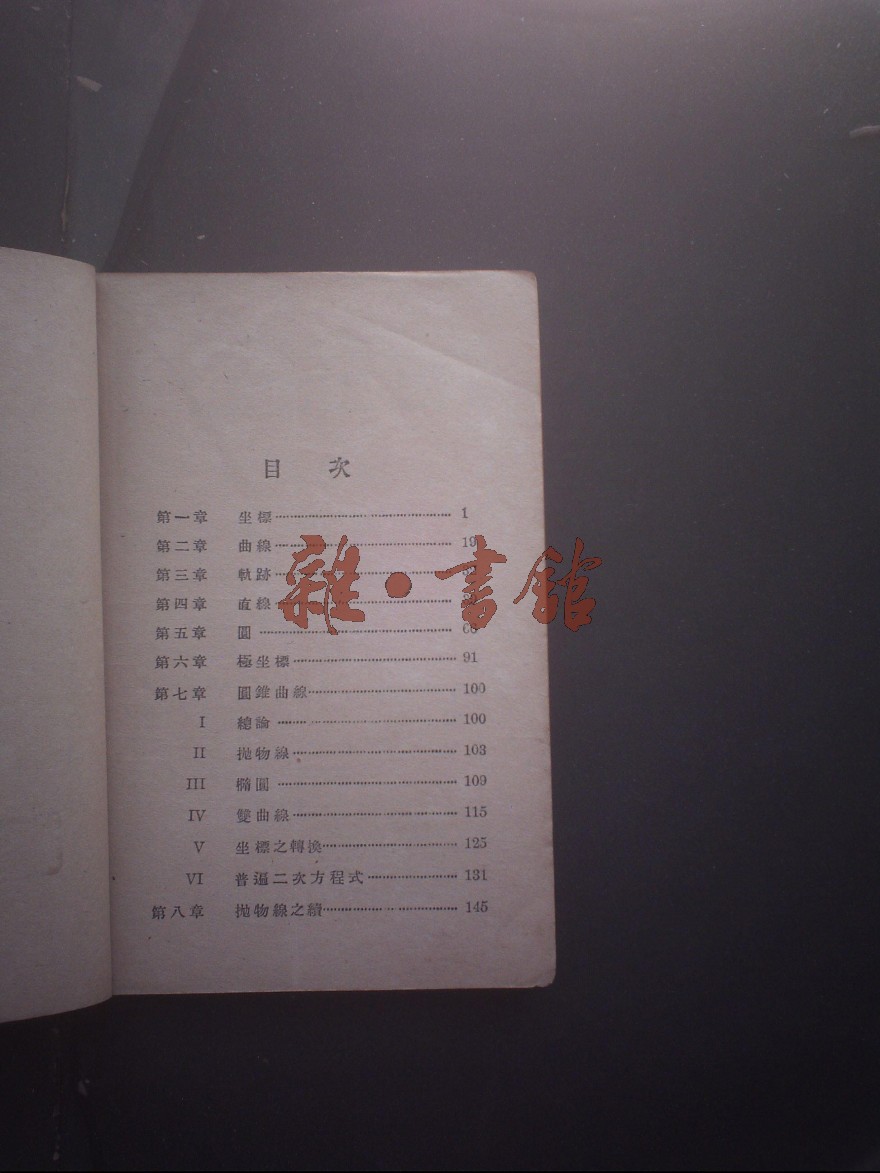 目 次
第一章 坐標 1
第二章 曲線 19
第三章 軌跡
第四章 直線
第五章 圓
第六章 極坐標 91
第七章 圓錐曲線 100
I 總論 100
II 拋物線 103
III 橢圓 109
IV 雙曲線 115
V 坐標之轉換 125
VI 普遍二次方程式 131
第八章 拋物線之續 145
雜·書館